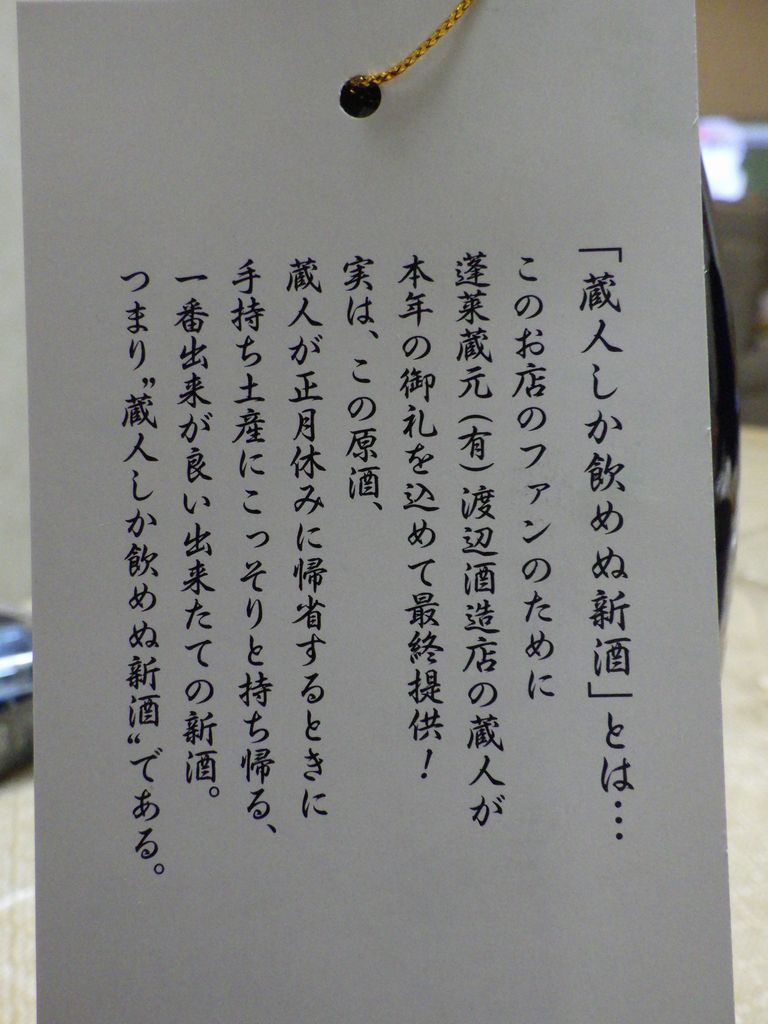 「蔵人しか飲めぬ新酒」とは…
このお店のファンのために
蓬莱蔵元(有)渡辺酒造店の蔵人が
本年の御礼を込めて最終提供！
実は、この原酒、
蔵人が正月休みに帰省するときに
手持ち土産にこっそりと持ち帰る、
一番出来が良い出来たての新酒。
つまり〝蔵人しか飲めぬ新酒〟である。